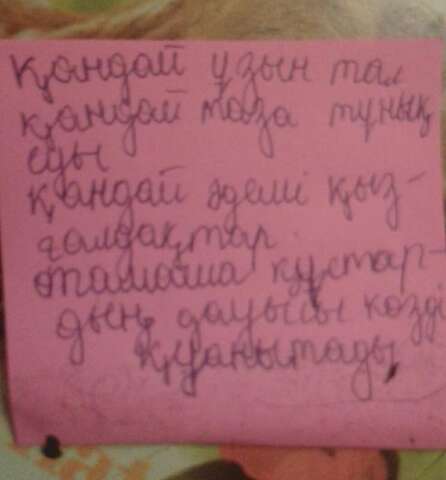 қандай ұзын тал
қандай таза тұнық
суы
қандай әдемі қыз-
ғалдақтар
тамаша құстар-
дың дауысы көзді
қуанытады